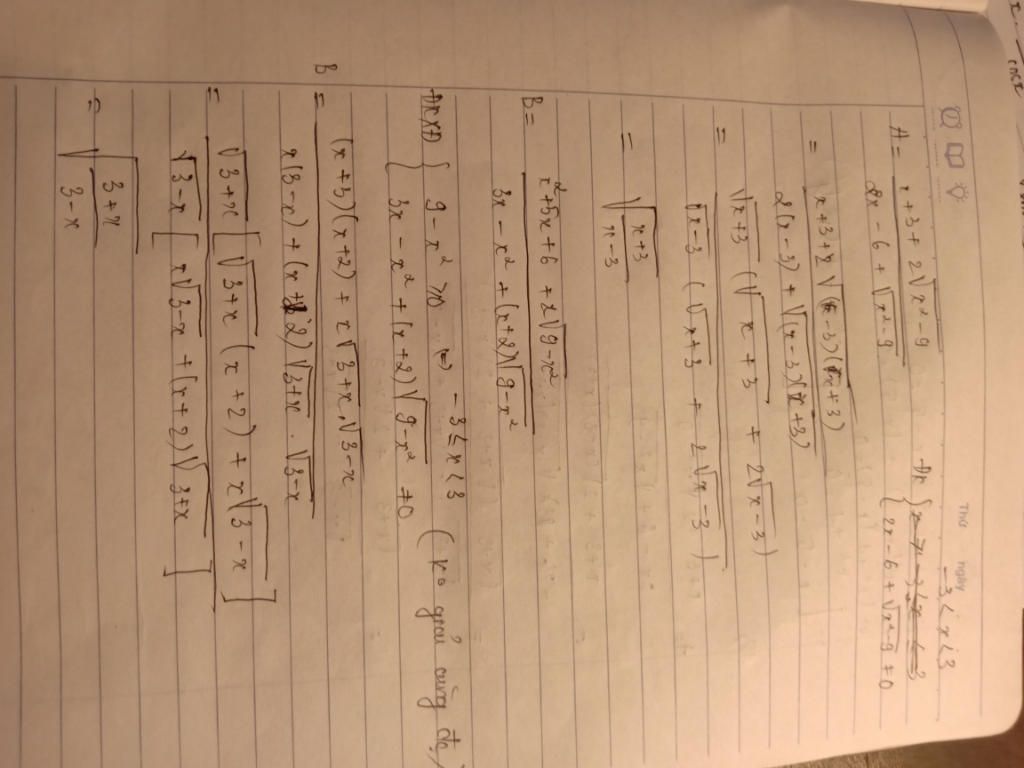 Thứ ngày
-3 < x < 3
A = \frac{x+3+2\sqrt{x^2-9}}{2x-6+\sqrt{x^2-9}} ĐK { 2x-6+\sqrt{x^2-9} ≠ 0
= \frac{x+3+2\sqrt{(x-3)(x+3)}}{2(x-3)+\sqrt{(x-3)(x+3)}}
= \frac{\sqrt{x+3}(\sqrt{x+3}+2\sqrt{x-3})}{\sqrt{x-3}(\sqrt{x+3}+2\sqrt{x-3})}
= \sqrt{\frac{x+3}{x-3}}
B = \frac{x^2+5x+6+x\sqrt{9-x^2}}{3x-x^2+(x+2)\sqrt{9-x^2}}
ĐKXĐ { 9-x^2 ≥ 0 (=) -3 ≤ x < 3
3x-x^2+(x+2)\sqrt{9-x^2} ≠ 0 (ko giải cũng đc)
B = \frac{(x+3)(x+2)+x\sqrt{3+x}.\sqrt{3-x}}{x(3-x)+(x+2)\sqrt{3+x}.\sqrt{3-x}}
= \frac{\sqrt{3+x}[\sqrt{3+x}(x+2)+x\sqrt{3-x}]}{\sqrt{3-x}[x\sqrt{3-x}+(x+2)\sqrt{3+x}]}
= \sqrt{\frac{3+x}{3-x}}